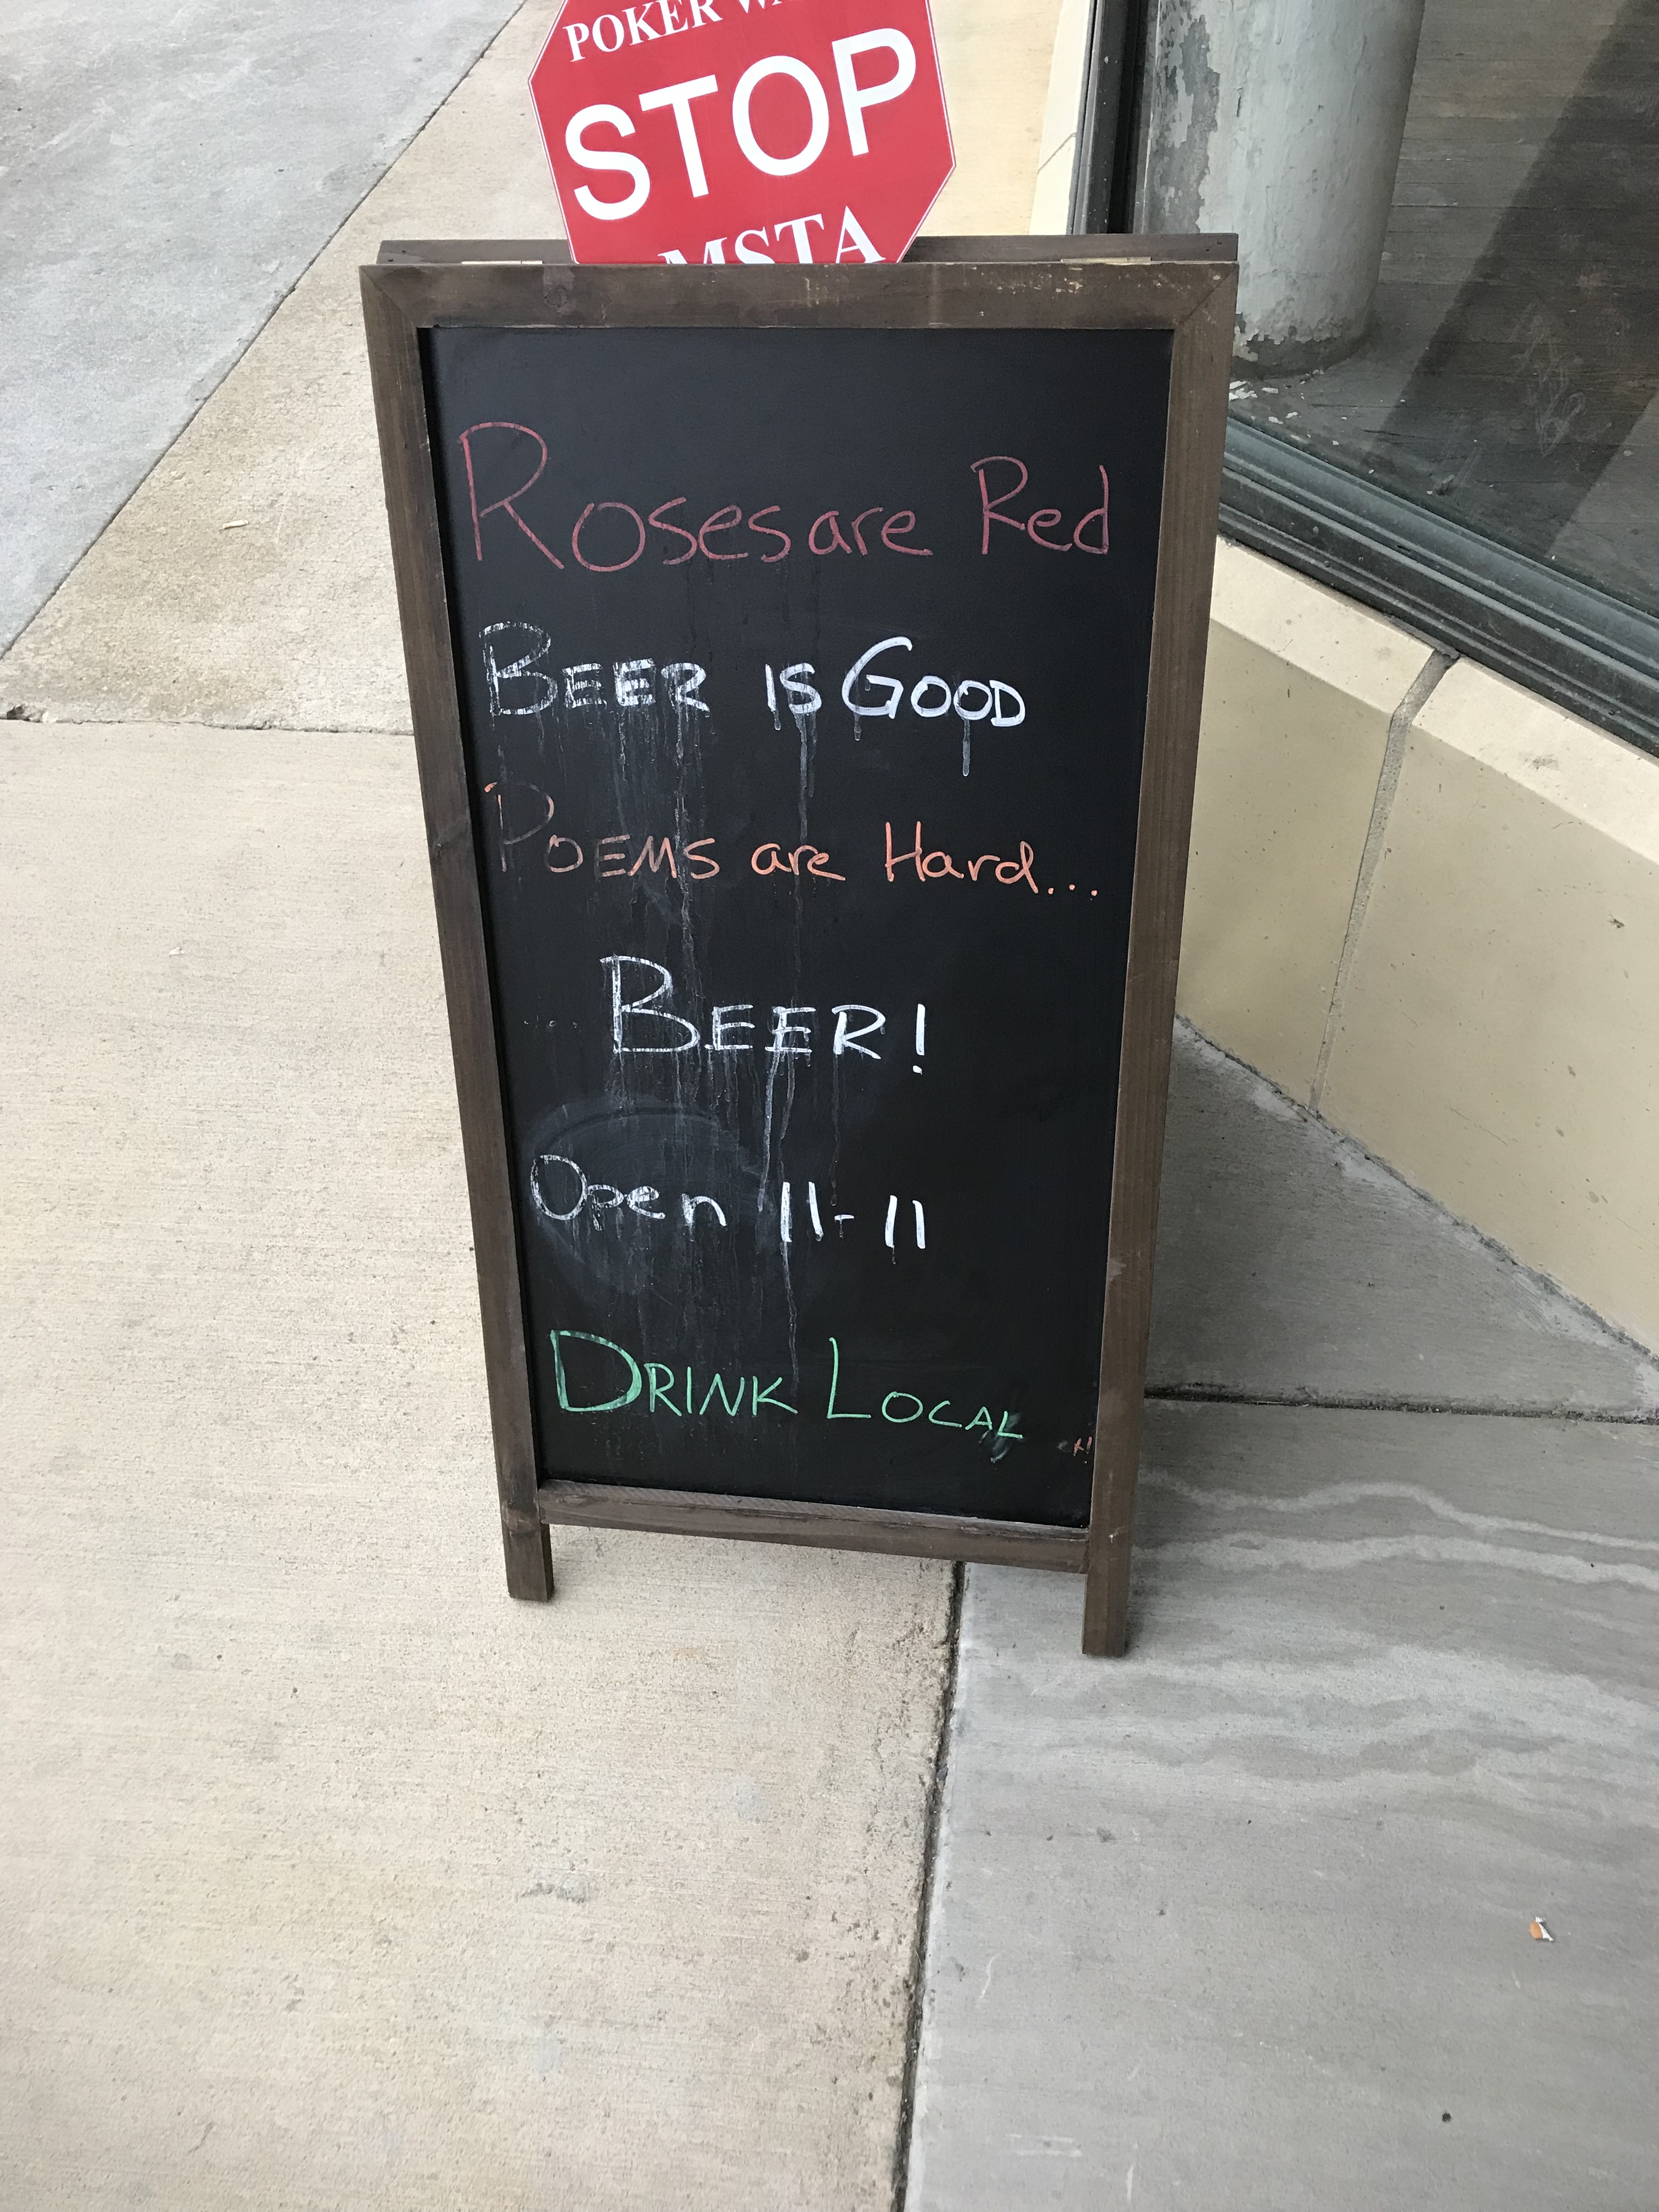 POKER
STOP
MSTA
Roses are Red
BEER IS GOOD
POEMS are Hard...
BEER!
Open 11-11
DRINK LOCAL